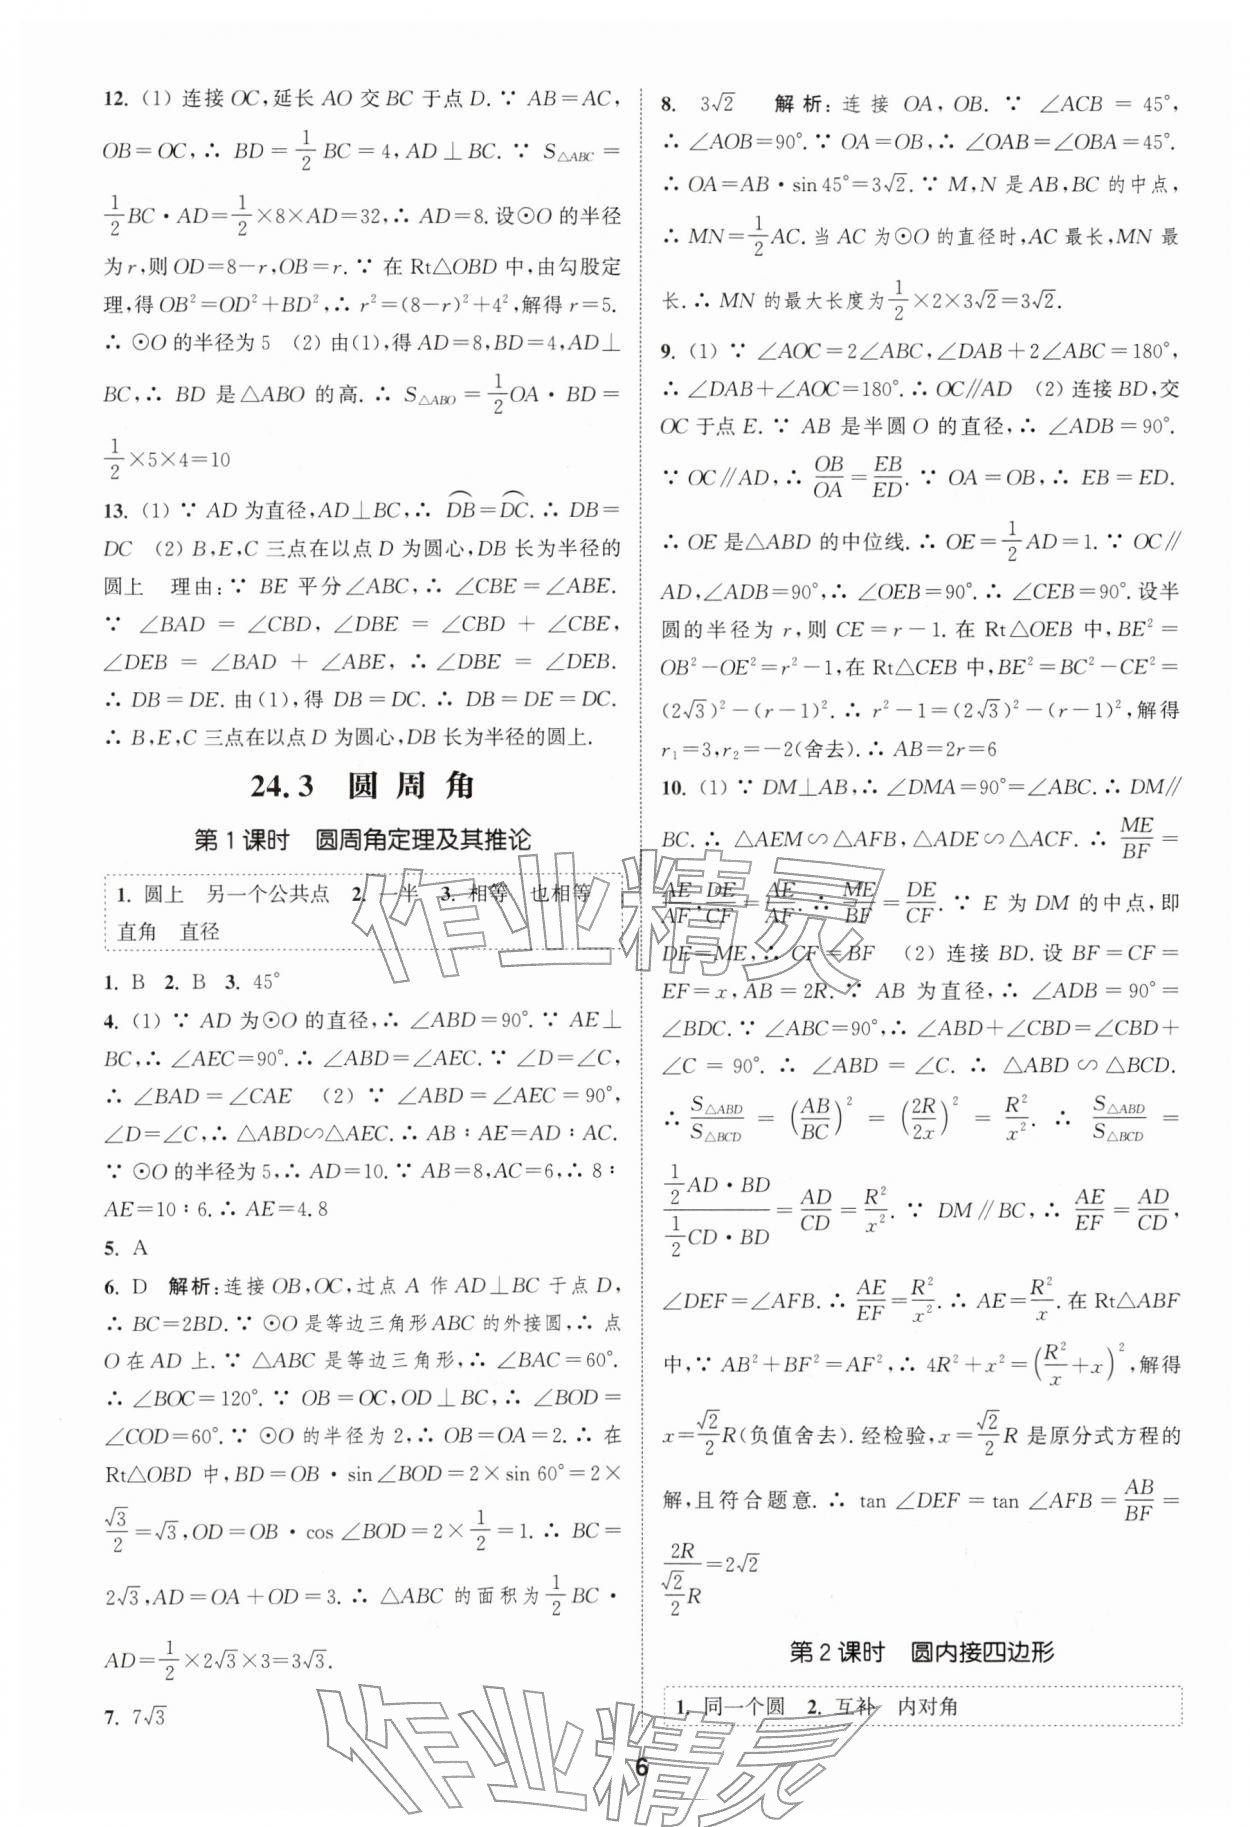 12. (1) 连接 OC,延长 AO 交 BC 于点 D. ∵ AB=AC,
OB=OC,∴ BD=1/2 BC=4,AD⊥BC. ∵ S△ABC=
1/2 BC·AD=1/2×8×AD=32,∴ AD=8. 设⊙O 的半径
为 r,则 OD=8-r,OB=r. ∵ 在 Rt△OBD 中,由勾股定
理,得 OB²=OD²+BD²,∴ r²=(8-r)²+4²,解得 r=5.
∴ ⊙O 的半径为 5 (2) 由(1),得 AD=8,BD=4,AD⊥
BC,∴ BD 是△ABO 的高. ∴ S△ABO=1/2 OA·BD=
1/2×5×4=10
13. (1) ∵ AD 为直径,AD⊥BC,∴ ⌒DB=⌒DC. ∴ DB=
DC (2) B,E,C 三点在以点 D 为圆心,DB 长为半径的
圆上 理由:∵ BE 平分∠ABC,∴ ∠CBE=∠ABE.
∵ ∠BAD = ∠CBD, ∠DBE = ∠CBD + ∠CBE,
∠DEB = ∠BAD + ∠ABE,∴ ∠DBE = ∠DEB.
∴ DB=DE. 由(1),得 DB=DC. ∴ DB=DE=DC.
∴ B,E,C 三点在以点 D 为圆心,DB 长为半径的圆上.
24.3 圆周角
第 1 课时 圆周角定理及其推论
1. 圆上 另一个公共点 2. 一半 3. 相等 也相等
直角 直径
1. B 2. B 3. 45°
4. (1) ∵ AD 为⊙O 的直径,∴ ∠ABD=90°. ∵ AE⊥
BC,∴ ∠AEC=90°. ∴ ∠ABD=∠AEC. ∵ ∠D=∠C,
∴ ∠BAD=∠CAE (2) ∵ ∠ABD=∠AEC=90°,
∠D=∠C,∴ △ABD∽△AEC. ∴ AB∶AE=AD∶AC.
∵ ⊙O 的半径为 5,∴ AD=10. ∵ AB=8,AC=6,∴ 8∶
AE=10∶6. ∴ AE=4.8
5. A
6. D 解析:连接 OB,OC,过点 A 作 AD⊥BC 于点 D,
∴ BC=2BD. ∵ ⊙O 是等边三角形 ABC 的外接圆,∴ 点
O 在 AD 上. ∵ △ABC 是等边三角形,∴ ∠BAC=60°.
∴ ∠BOC=120°. ∵ OB=OC,OD⊥BC,∴ ∠BOD=
∠COD=60°. ∵ ⊙O 的半径为 2,∴ OB=OA=2. ∴ 在
Rt△OBD 中,BD=OB·sin∠BOD=2×sin 60°=2×
√3/2=√3,OD=OB·cos∠BOD=2×1/2=1. ∴ BC=
2√3,AD=OA+OD=3. ∴ △ABC 的面积为1/2 BC·
AD=1/2×2√3×3=3√3.
7. 7√3
8. 3√2 解析:连接 OA,OB. ∵ ∠ACB = 45°,
∴ ∠AOB=90°. ∵ OA=OB,∴ ∠OAB=∠OBA=45°.
∴ OA=AB·sin 45°=3√2. ∵ M,N 是 AB,BC 的中点,
∴ MN=1/2 AC. 当 AC 为⊙O 的直径时,AC 最长,MN 最
长. ∴ MN 的最大长度为1/2×2×3√2=3√2.
9. (1) ∵ ∠AOC=2∠ABC,∠DAB+2∠ABC=180°,
∴ ∠DAB+∠AOC=180°. ∴ OC∥AD (2) 连接 BD,交
OC 于点 E. ∵ AB 是半圆 O 的直径,∴ ∠ADB=90°.
∵ OC∥AD,∴ OB/OA=EB/ED. ∵ OA=OB,∴ EB=ED.
∴ OE 是△ABD 的中位线. ∴ OE=1/2 AD=1. ∵ OC∥
AD,∠ADB=90°,∴ ∠OEB=90°. ∴ ∠CEB=90°. 设半
圆的半径为 r,则 CE=r-1. 在 Rt△OEB 中,BE²=
OB²-OE²=r²-1,在 Rt△CEB 中,BE²=BC²-CE²=
(2√3)²-(r-1)². ∴ r²-1=(2√3)²-(r-1)²,解得
r₁=3,r₂=-2(舍去). ∴ AB=2r=6
10. (1) ∵ DM⊥AB,∴ ∠DMA=90°=∠ABC. ∴ DM∥
BC. ∴ △AEM∽△AFB,△ADE∽△ACF. ∴ ME/BF=
AE/AF,DE/CF=AE/AF. ∴ ME/BF=DE/CF. ∵ E 为 DM 的中点,即
DE=ME,∴ CF=BF (2) 连接 BD. 设 BF=CF=
EF=x,AB=2R. ∵ AB 为直径,∴ ∠ADB=90°=
∠BDC. ∵ ∠ABC=90°,∴ ∠ABD+∠CBD=∠CBD+
∠C = 90°. ∴ ∠ABD = ∠C. ∴ △ABD ∽ △BCD.
∴ S△ABD/S△BCD=(AB/BC)²=(2R/2x)²=R²/x². ∴ S△ABD/S△BCD=
(1/2 AD·BD)/(1/2 CD·BD)=AD/CD=R²/x². ∵ DM∥BC,∴ AE/EF=AD/CD,
∠DEF=∠AFB. ∴ AE/EF=R²/x². ∴ AE=R²/x. 在 Rt△ABF
中,∵ AB²+BF²=AF²,∴ 4R²+x²=(R²/x+x)²,解得
x=√2/2 R(负值舍去). 经检验,x=√2/2 R 是原分式方程的
解,且符合题意. ∴ tan ∠DEF=tan ∠AFB=AB/BF=
2R/(√2/2 R)=2√2
第 2 课时 圆内接四边形
1. 同一个圆 2. 互补 内对角
6
作业精灵
作业精灵